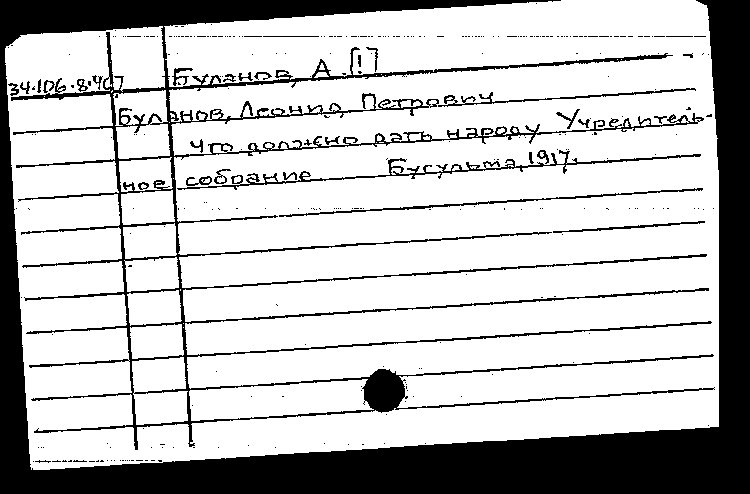 34.106.8.467 Буланов, А [!]
Буланов, Леонид Петрович
Что должно дать народу Учредитель-
ное собрание Бугульма, 1917.